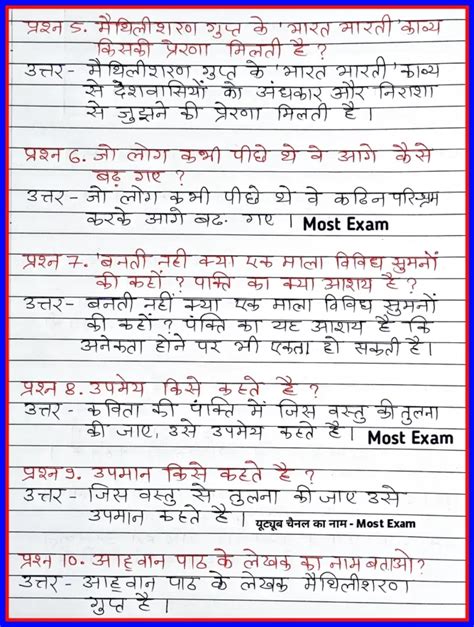 प्रश्न 5. मैथिलीशरण गुप्त के 'भारत भारती' काव्य
किसकी प्रेरणा मिलती है ?
उत्तर - मैथिलीशरण गुप्त के 'भारत भारती' काव्य
से देशवासियों को अंधकार और निराशा
से जुझने की प्रेरणा मिलती है ।
प्रश्न 6. जो लोग कभी पीछे थे वे आगे कैसे
बढ़ गए ?
उत्तर - जो लोग कभी पीछे थे वे कठिन परिश्रम
करके आगे बढ़ गए । Most Exam
प्रश्न 7. 'बनती नही क्या एक माला विविध सुमनों
की कहों ? पंक्ति का क्या आशय है ?
उत्तर - बनती नहीं क्या एक माला विविध सुमनों
की कहों ? पंक्ति का यह आशय है कि
अनेकता होने पर भी एकता हो सकती है ।
प्रश्न 8. उपमेय किसे कहते है ?
उत्तर - कविता की पंक्ति में जिस वस्तु की तुलना
की जाए, उसे उपमेय कहते है । Most Exam
प्रश्न 9. उपमान किसे कहते है ?
उत्तर - जिस वस्तु से तुलना की जाए उसे
उपमान कहते है । यूट्यूब चैनल का नाम - Most Exam
प्रश्न 10. आह्वान पाठ के लेखक का नाम बताओ?
उत्तर - आह्वान पाठ के लेखक मैथिलीशरण
गुप्त है ।